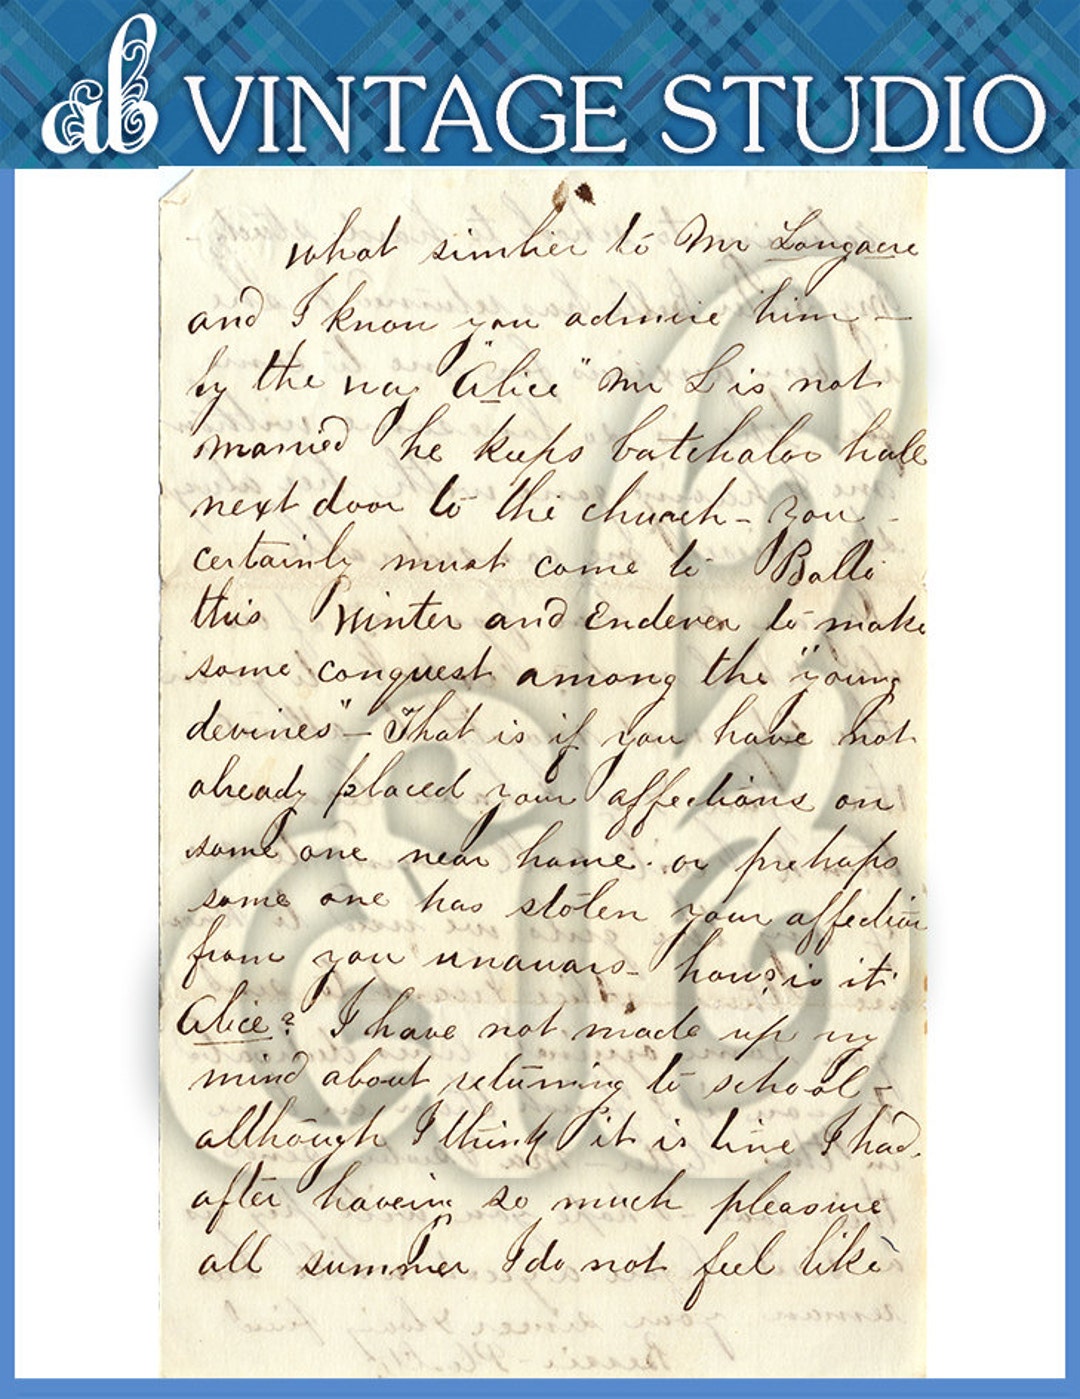 ab VINTAGE STUDIO
what similier to Mr Longacre
and I know you admire him –
by the way "Alice" Mr L is not
married he keeps batchalor hall
next door to the church – You –
certainly must come to Balto
this Winter and Endever to make
some conquest among the "young
devines" – That is if you have not
already placed your affections on
some one near home. or prehaps
some one has stolen your affection
from you unawars – how is it
Alice? I have not made up my
mind about returning to school –
although I think it is time I had.
after haveing so much pleasure
all summer I do not feel like